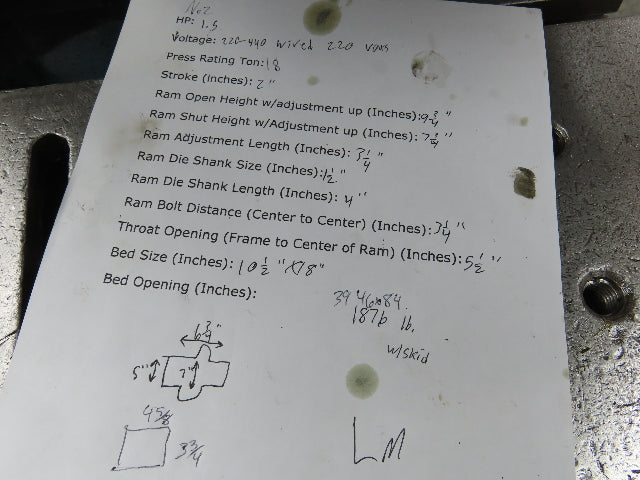 No2
HP: 1.5
Voltage: 220-440 wired 220
Press Rating Ton: 18
Stroke (Inches): 2"
Ram Open Height w/adjustment up (Inches): 9 3/4"
Ram Shut Height w/Adjustment up (Inches): 7 3/4"
Ram Adjustment Length (Inches): 3 1/4"
Ram Die Shank Size (Inches): 1 1/2"
Ram Die Shank Length (Inches): 4"
Ram Bolt Distance (Center to Center) (Inches): 3 1/4"
Throat Opening (Frame to Center of Ram) (Inches): 5 1/2"
Bed Size (Inches): 10 1/2" X 18"
Bed Opening (Inches):
39 46x84
1876 lb.
w/skid
6 3/4"
5"
7"
4 5/8
3 3/4
LM